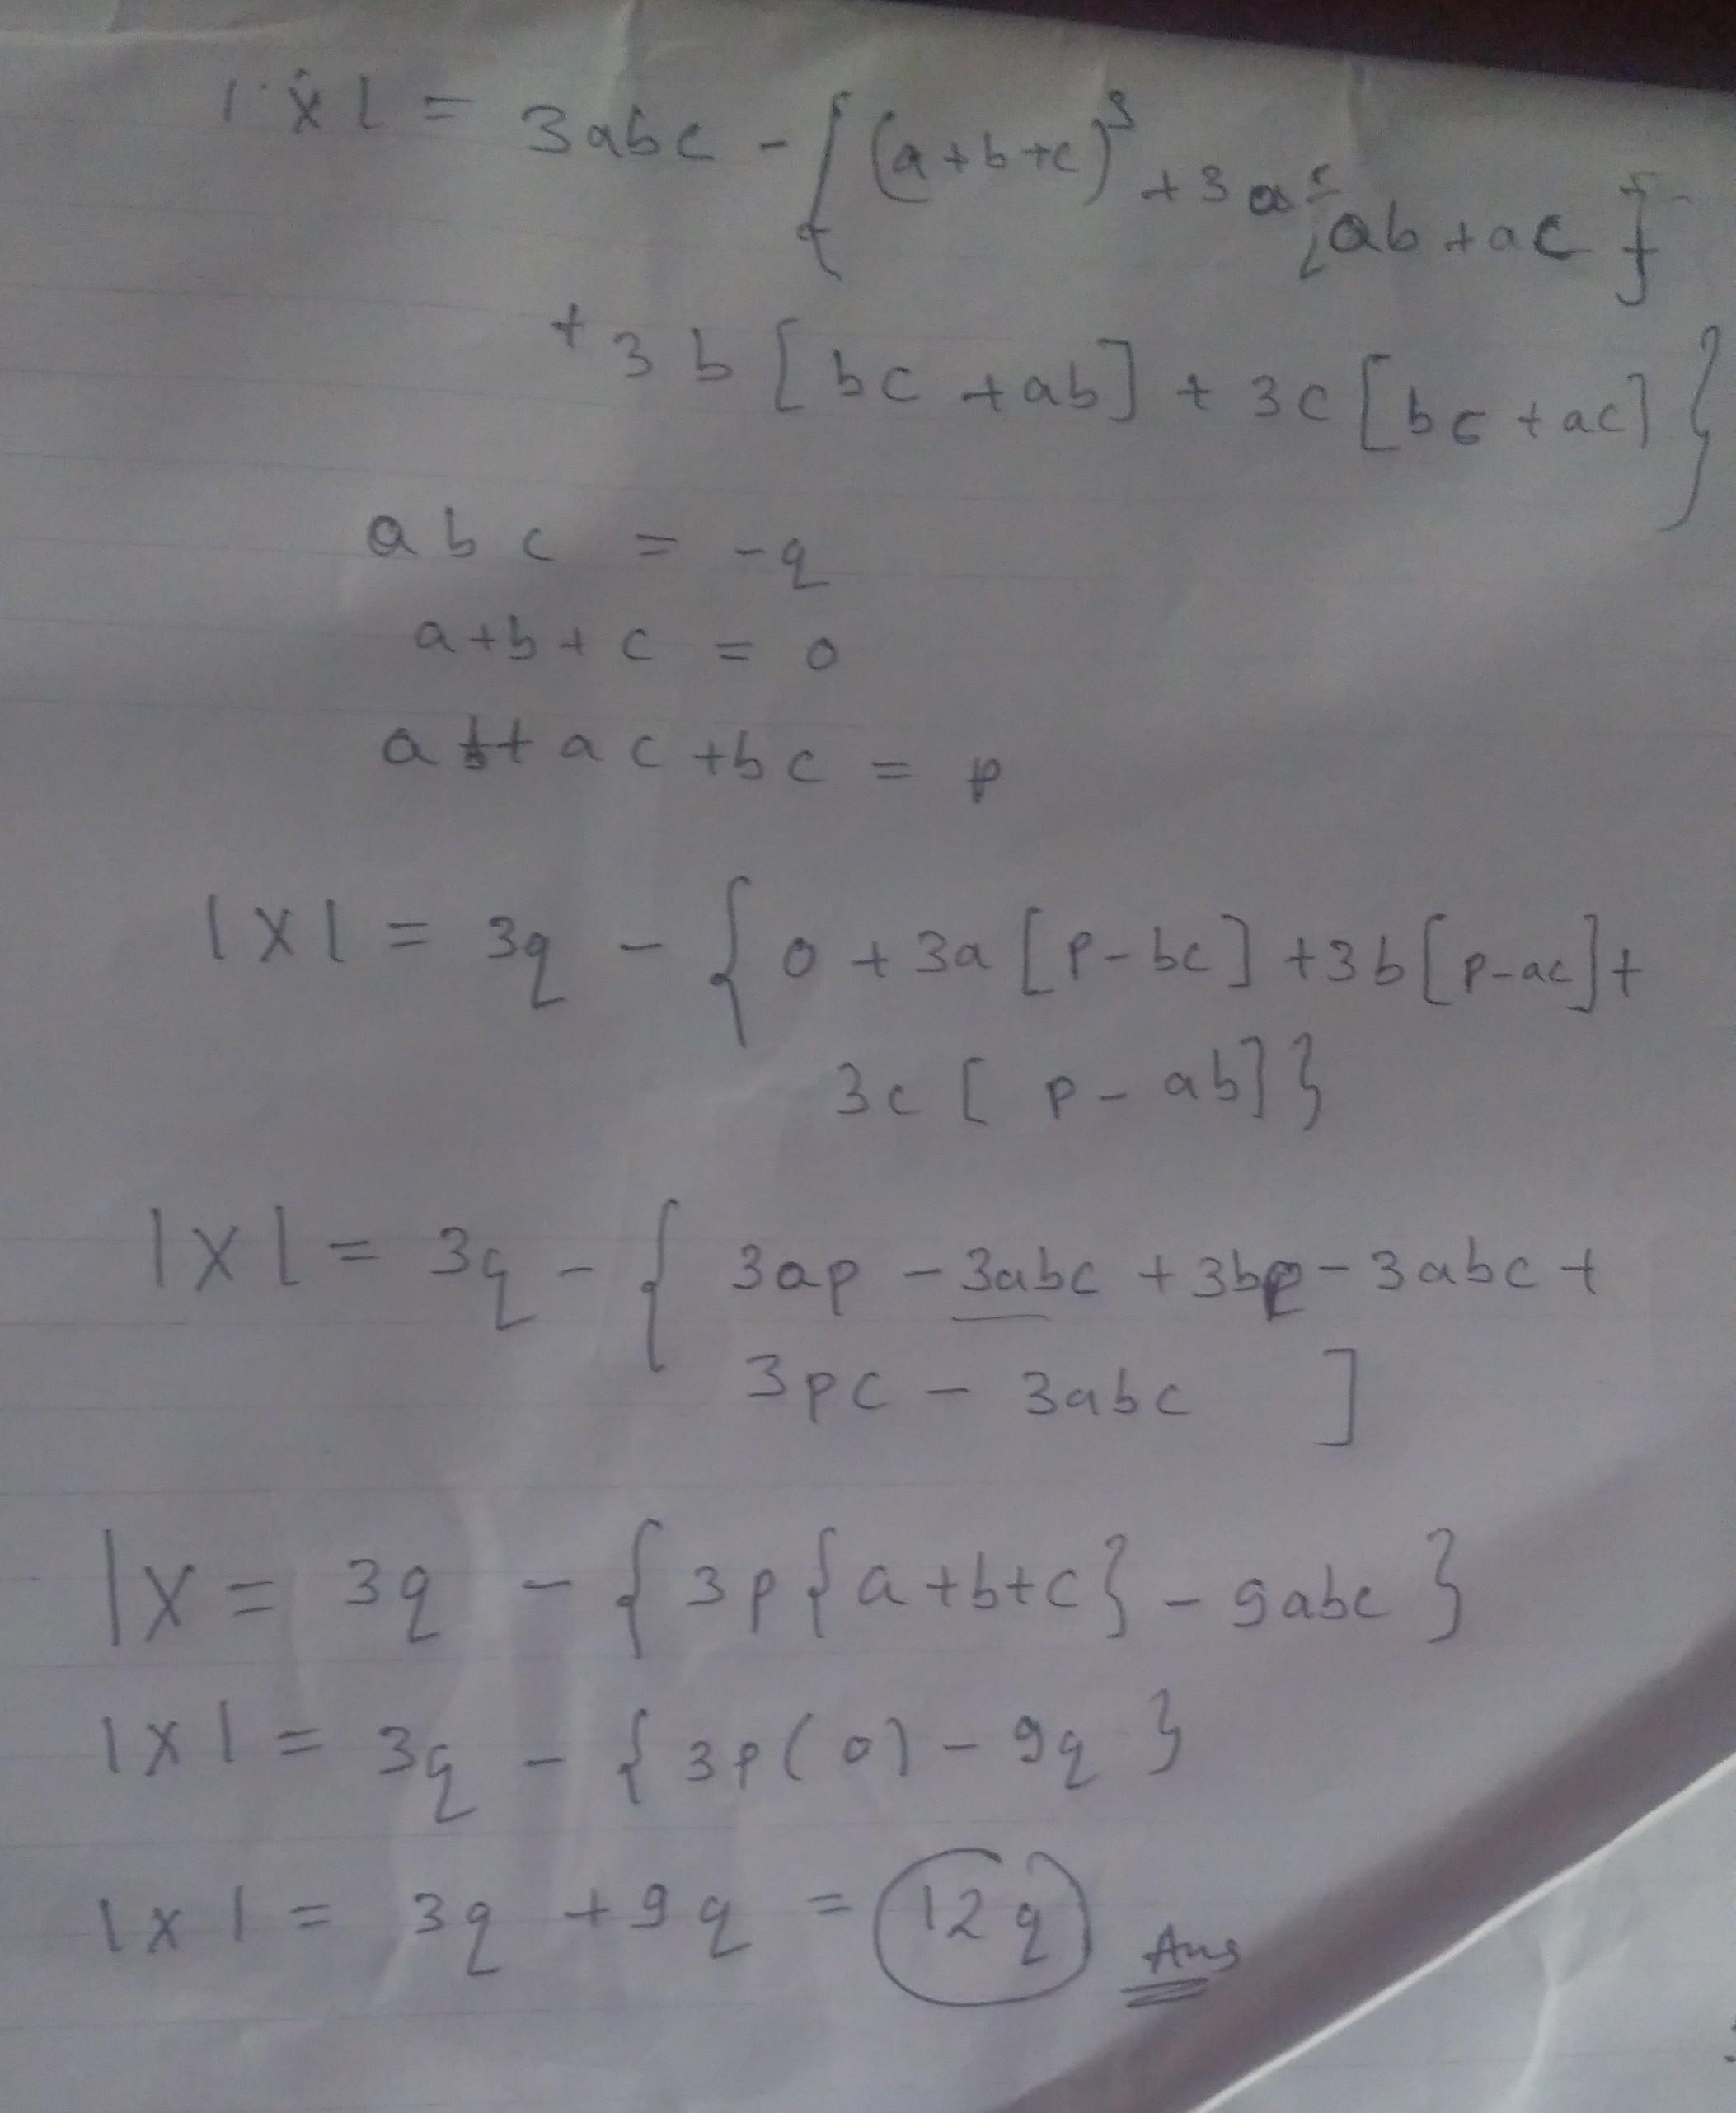 |X| = 3abc - { (a+b+c)³ + 3a {ab + ac }
+ 3b [bc + ab] + 3c [bc + ac] }
abc = -q
a+b+c = 0
ab + ac + bc = p
|X| = 3q - { 0 + 3a [p-bc] + 3b [p-ac] +
3c [ p - ab] }
|X| = 3q - { 3ap - 3abc + 3bp - 3abc +
3pc - 3abc ]
|X = 3q - { 3p {a+b+c} - 9abc }
|X| = 3q - { 3p(0) - 9q }
|X| = 3q + 9q = 12q Ans